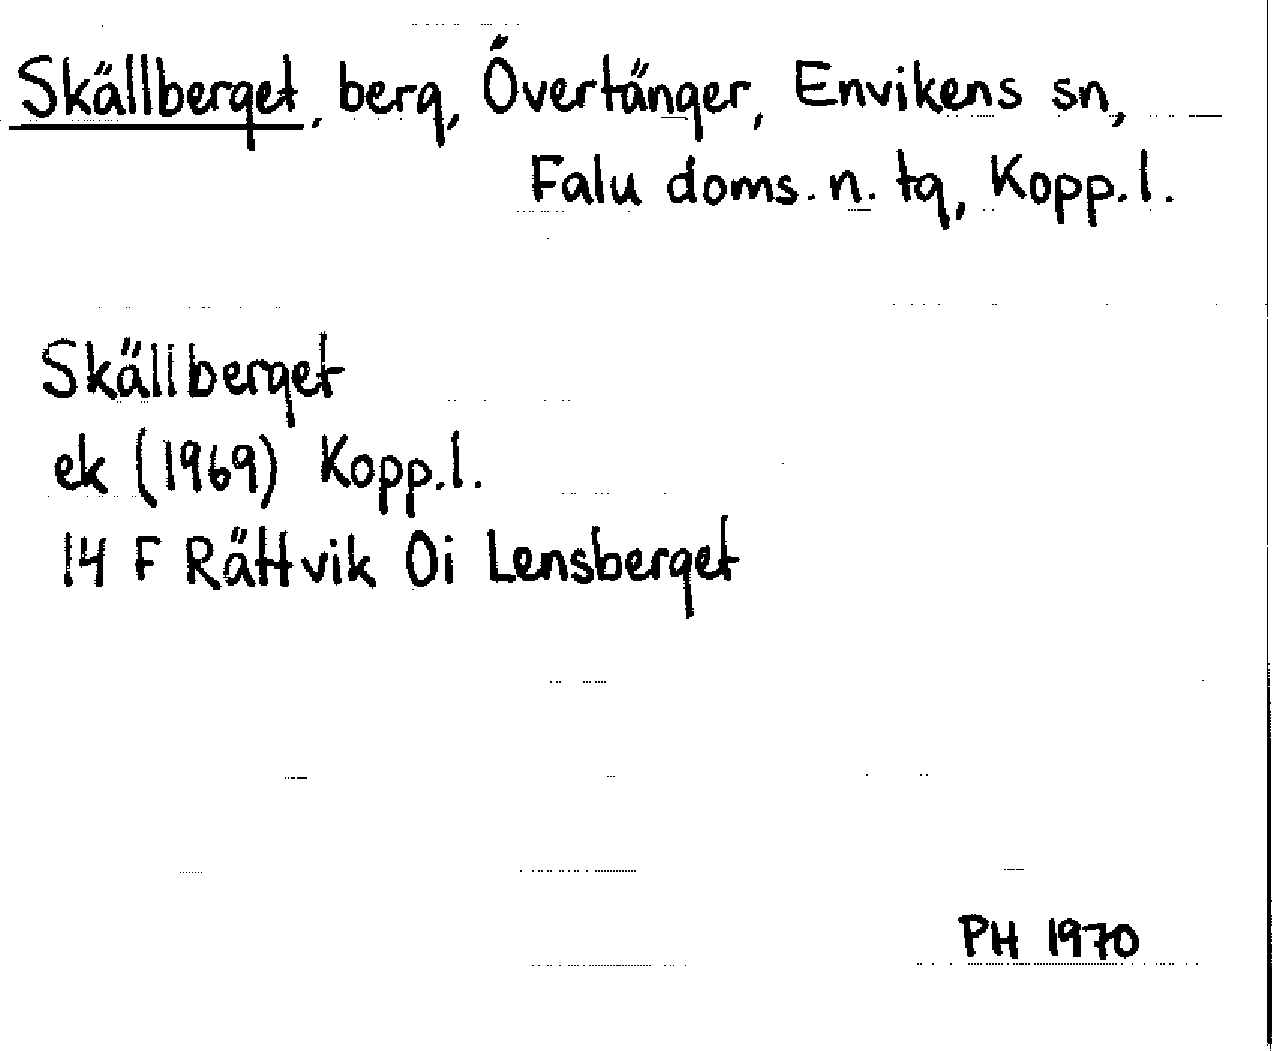 Skällberget, berg, Övertänger, Envikens sn,
Falu doms. n. tg, Kopp. l.
Skällberget
ek (1969) Kopp. l.
14 F Rättvik 0i Lensberget
PH 1970